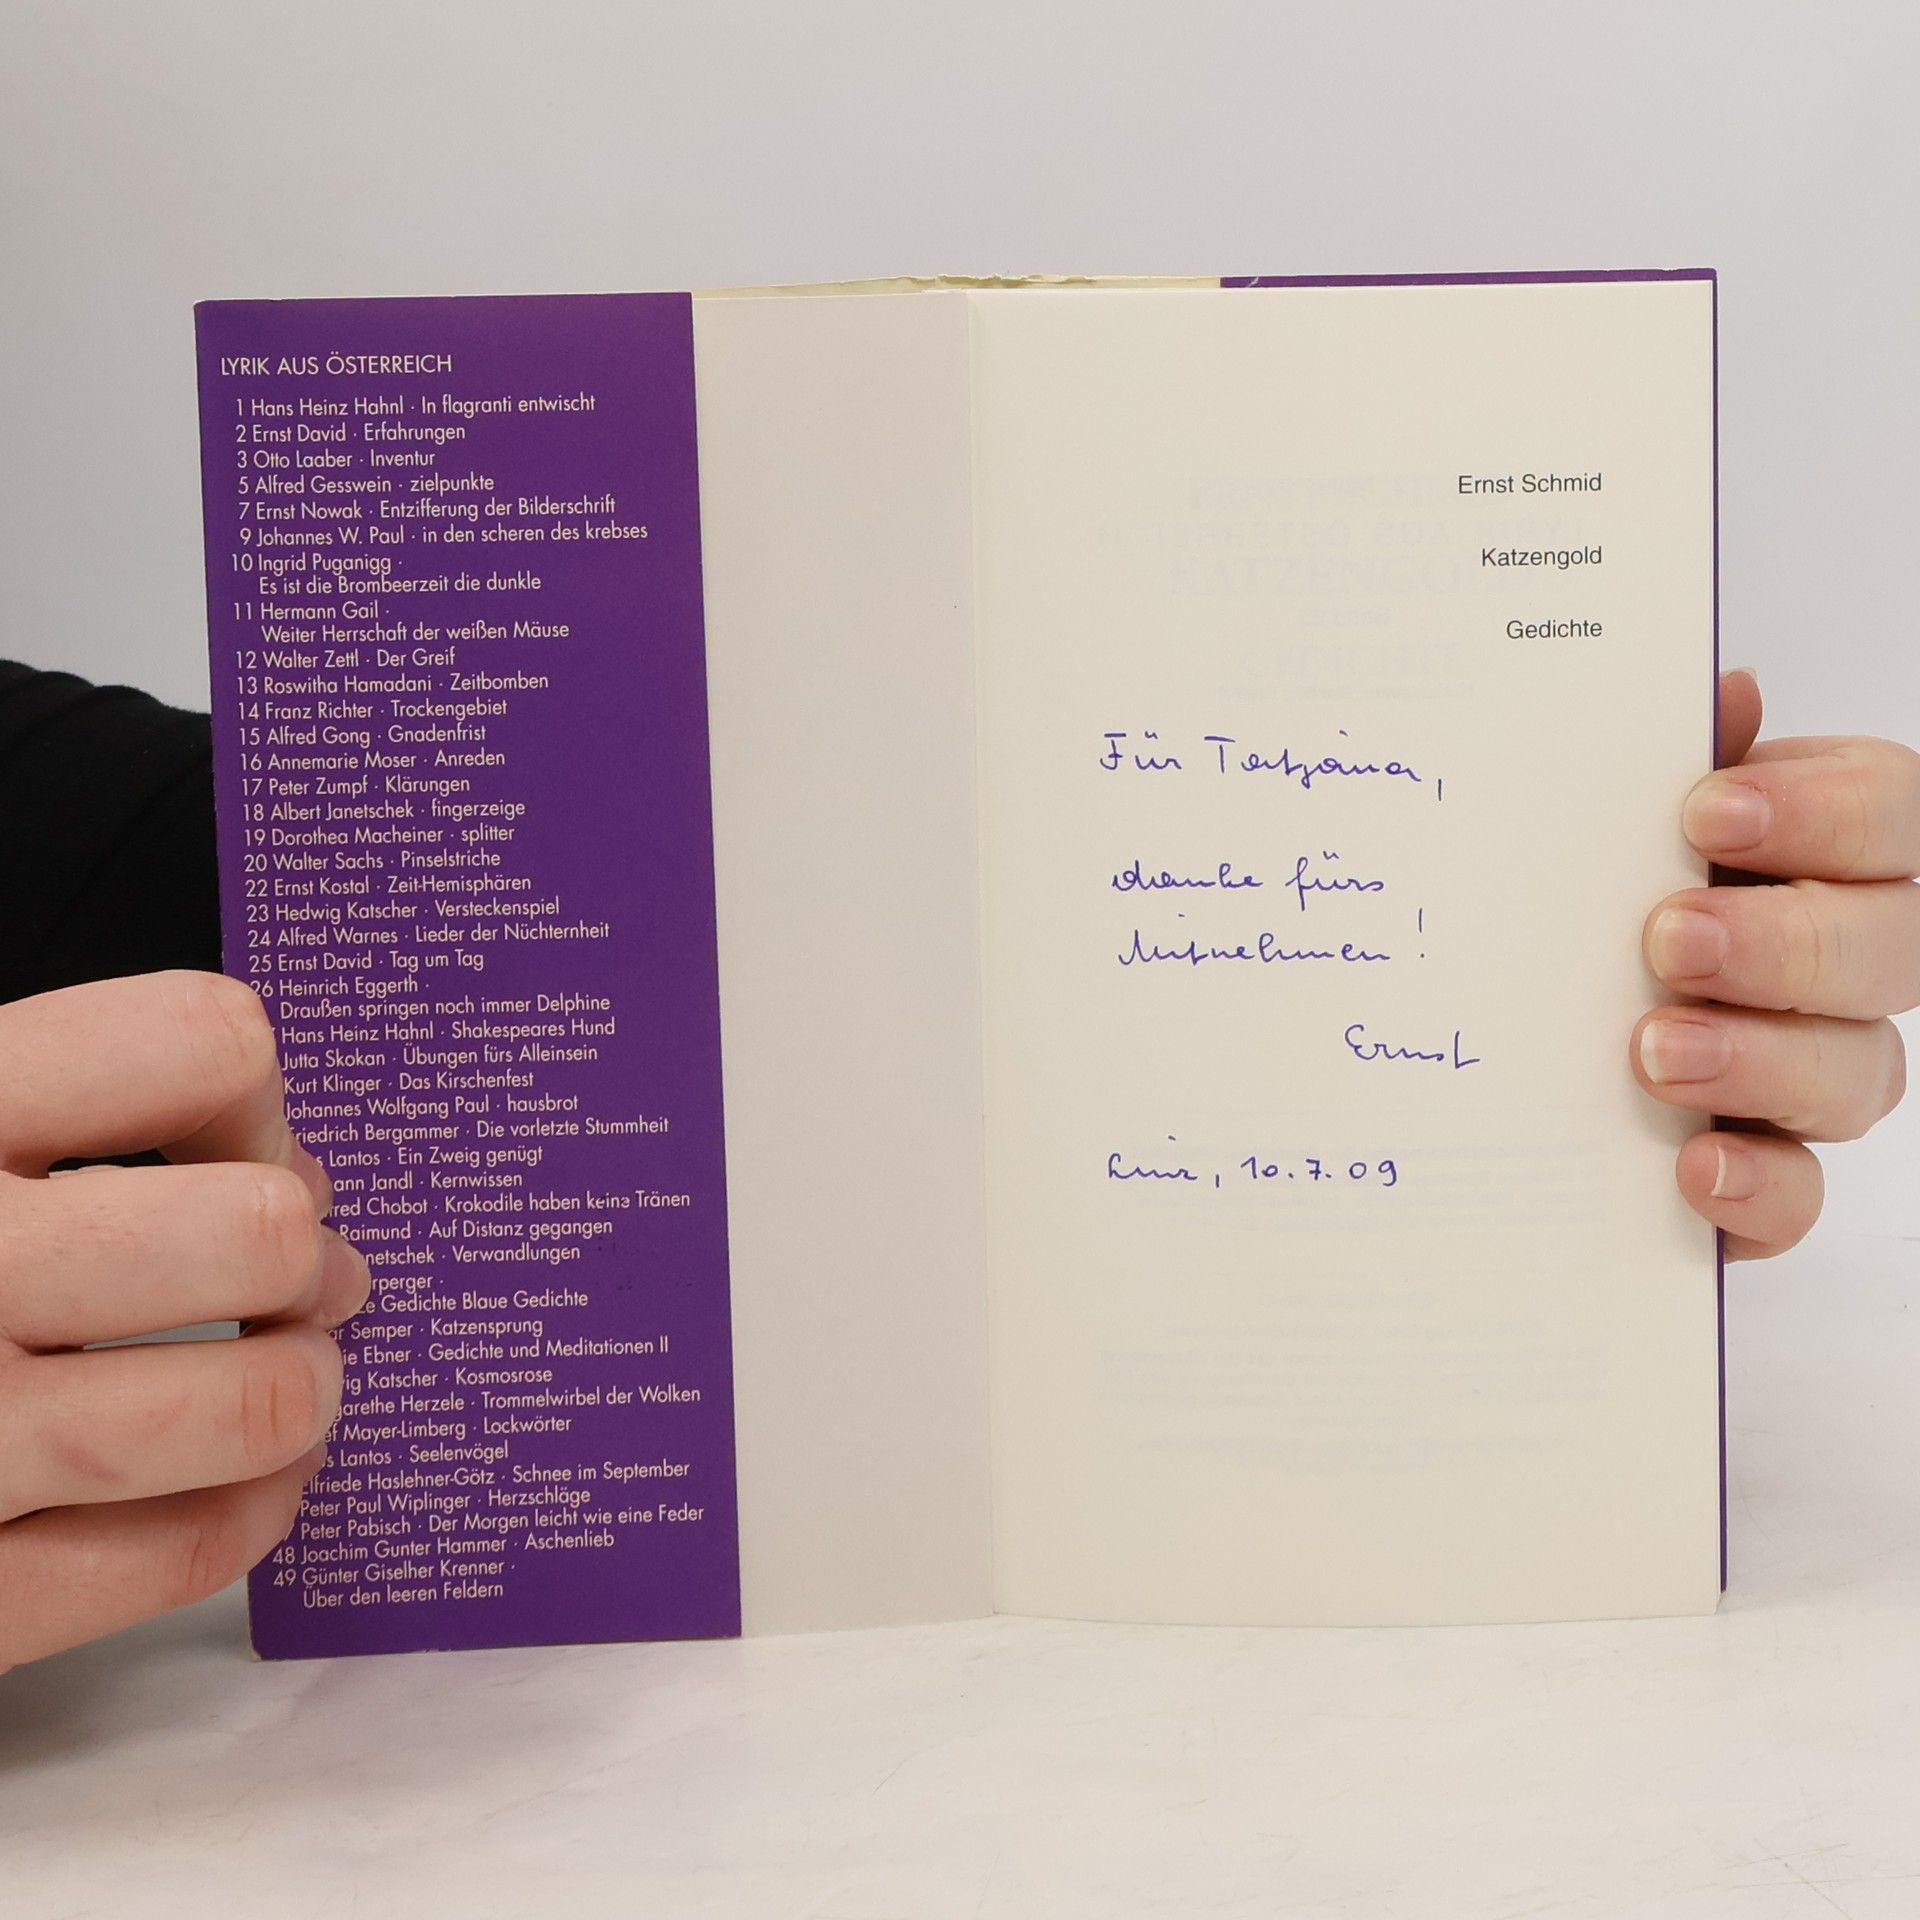 LYRIK AUS ÖSTERREICH
1 Hans Heinz Hahnl · In flagranti entwischt
2 Ernst David · Erfahrungen
3 Otto Laaber · Inventur
5 Alfred Gesswein · zielpunkte
7 Ernst Nowak · Entzifferung der Bilderschrift
9 Johannes W. Paul · in den scheren des krebses
10 Ingrid Puganigg ·
Es ist die Brombeerzeit die dunkle
11 Hermann Gail ·
Weiter Herrschaft der weißen Mäuse
12 Walter Zettl · Der Greif
13 Roswitha Hamadani · Zeitbomben
14 Franz Richter · Trockengebiet
15 Alfred Gong · Gnadenfrist
16 Annemarie Moser · Anreden
17 Peter Zumpf · Klärungen
18 Albert Janetschek · fingerzeige
19 Dorothea Macheiner · splitter
20 Walter Sachs · Pinselstriche
22 Ernst Kostal · Zeit-Hemisphären
23 Hedwig Katscher · Versteckenspiel
24 Alfred Warnes · Lieder der Nüchternheit
25 Ernst David · Tag um Tag
26 Heinrich Eggerth ·
Draußen springen noch immer Delphine
Hans Heinz Hahnl · Shakespeares Hund
Jutta Skokan · Übungen fürs Alleinsein
Kurt Klinger · Das Kirschenfest
Johannes Wolfgang Paul · hausbrot
riedrich Bergammer · Die vorletzte Stummheit
s Lantos · Ein Zweig genügt
ann Jandl · Kernwissen
red Chobot · Krokodile haben keine Tränen
Raimund · Auf Distanz gegangen
netschek · Verwandlungen
rperger ·
ze Gedichte Blaue Gedichte
ar Semper · Katzensprung
ie Ebner · Gedichte und Meditationen II
ig Katscher · Kosmosrose
garethe Herzele · Trommelwirbel der Wolken
ef Mayer-Limberg · Lockwörter
s Lantos · Seelenvögel
lfriede Haslehner-Götz · Schnee im September
Peter Paul Wiplinger · Herzschläge
Peter Pabisch · Der Morgen leicht wie eine Feder
48 Joachim Gunter Hammer · Aschenlieb
49 Günter Giselher Krenner ·
Über den leeren Feldern
Ernst Schmid
Katzengold
Gedichte
Für Tatjana,
danke fürs
Mitnehmen!
Ernst
Linz, 10.7.09